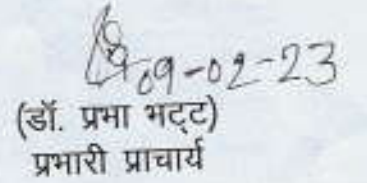 09-02-23
(डॉ. प्रभा भट्ट)
प्रभारी प्राचार्य